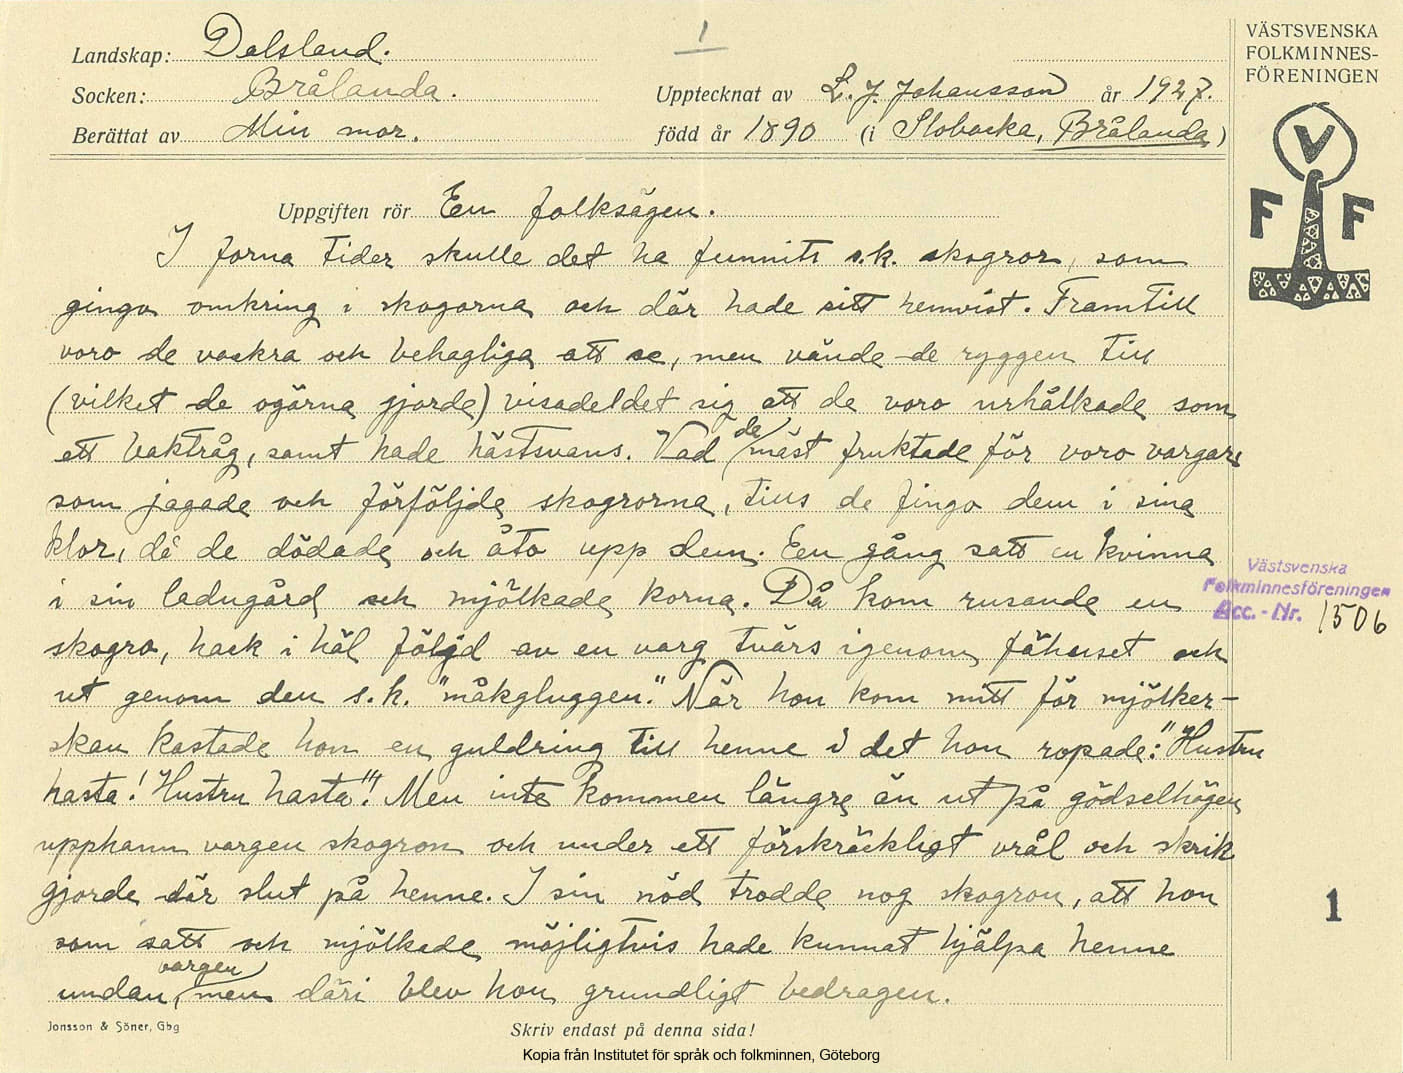 1
Landskap: Dalsland.
Socken: Brålanda.
Berättat av Min mor.
Upptecknat av L. J. Johansson år 1927.
född år 1890 (i Slobacka, Brålanda)
VÄSTSVENSKA
FOLKMINNES-
FÖRENINGEN
V
F F
Uppgiften rör En folksägen.
I forna tider skulle det ha funnits s.k. skogror, som
gingo omkring i skogarna och där hade sitt hemvist. Framtill
voro de vackra och behagliga att se, men vände de ryggen till
(vilket de ogärna gjorde) visade det sig att de voro urhålkade som
ett baktråg, samt hade hästsvans. Vad de mäst fruktade för voro vargar
som jagade och förföljde skogrorna, tills de fingo dem i sina
klor, då de dödade och åto upp dem. En gång satt en kvinna
i sin ladugård och mjölkade korna. Då kom rusande en
skogro, hack i häl följd av en varg tvärs igenom fähuset och
ut genom den s.k. "måkgluggen." När hon kom mitt för mjölker-
skan kastade hon en guldring till henne i det hon ropade: "Hustru
hasta! Hustru hasta"! Men inte kommen längre än ut på gödselhögen
upphann vargen skogron och under ett förskräckligt vrål och skrik
gjorde där slut på henne. I sin nöd trodde nog skogron, att hon
som satt och mjölkade möjligtvis hade kunnat hjälpa henne
undan vargen, men däri blev hon grundligt bedragen.
Västsvenska
Folkminnesföreningen
Acc.-Nr. 1506
1
Jonsson & Söner, Gbg
Skriv endast på denna sida!
Kopia från Institutet för språk och folkminnen, Göteborg